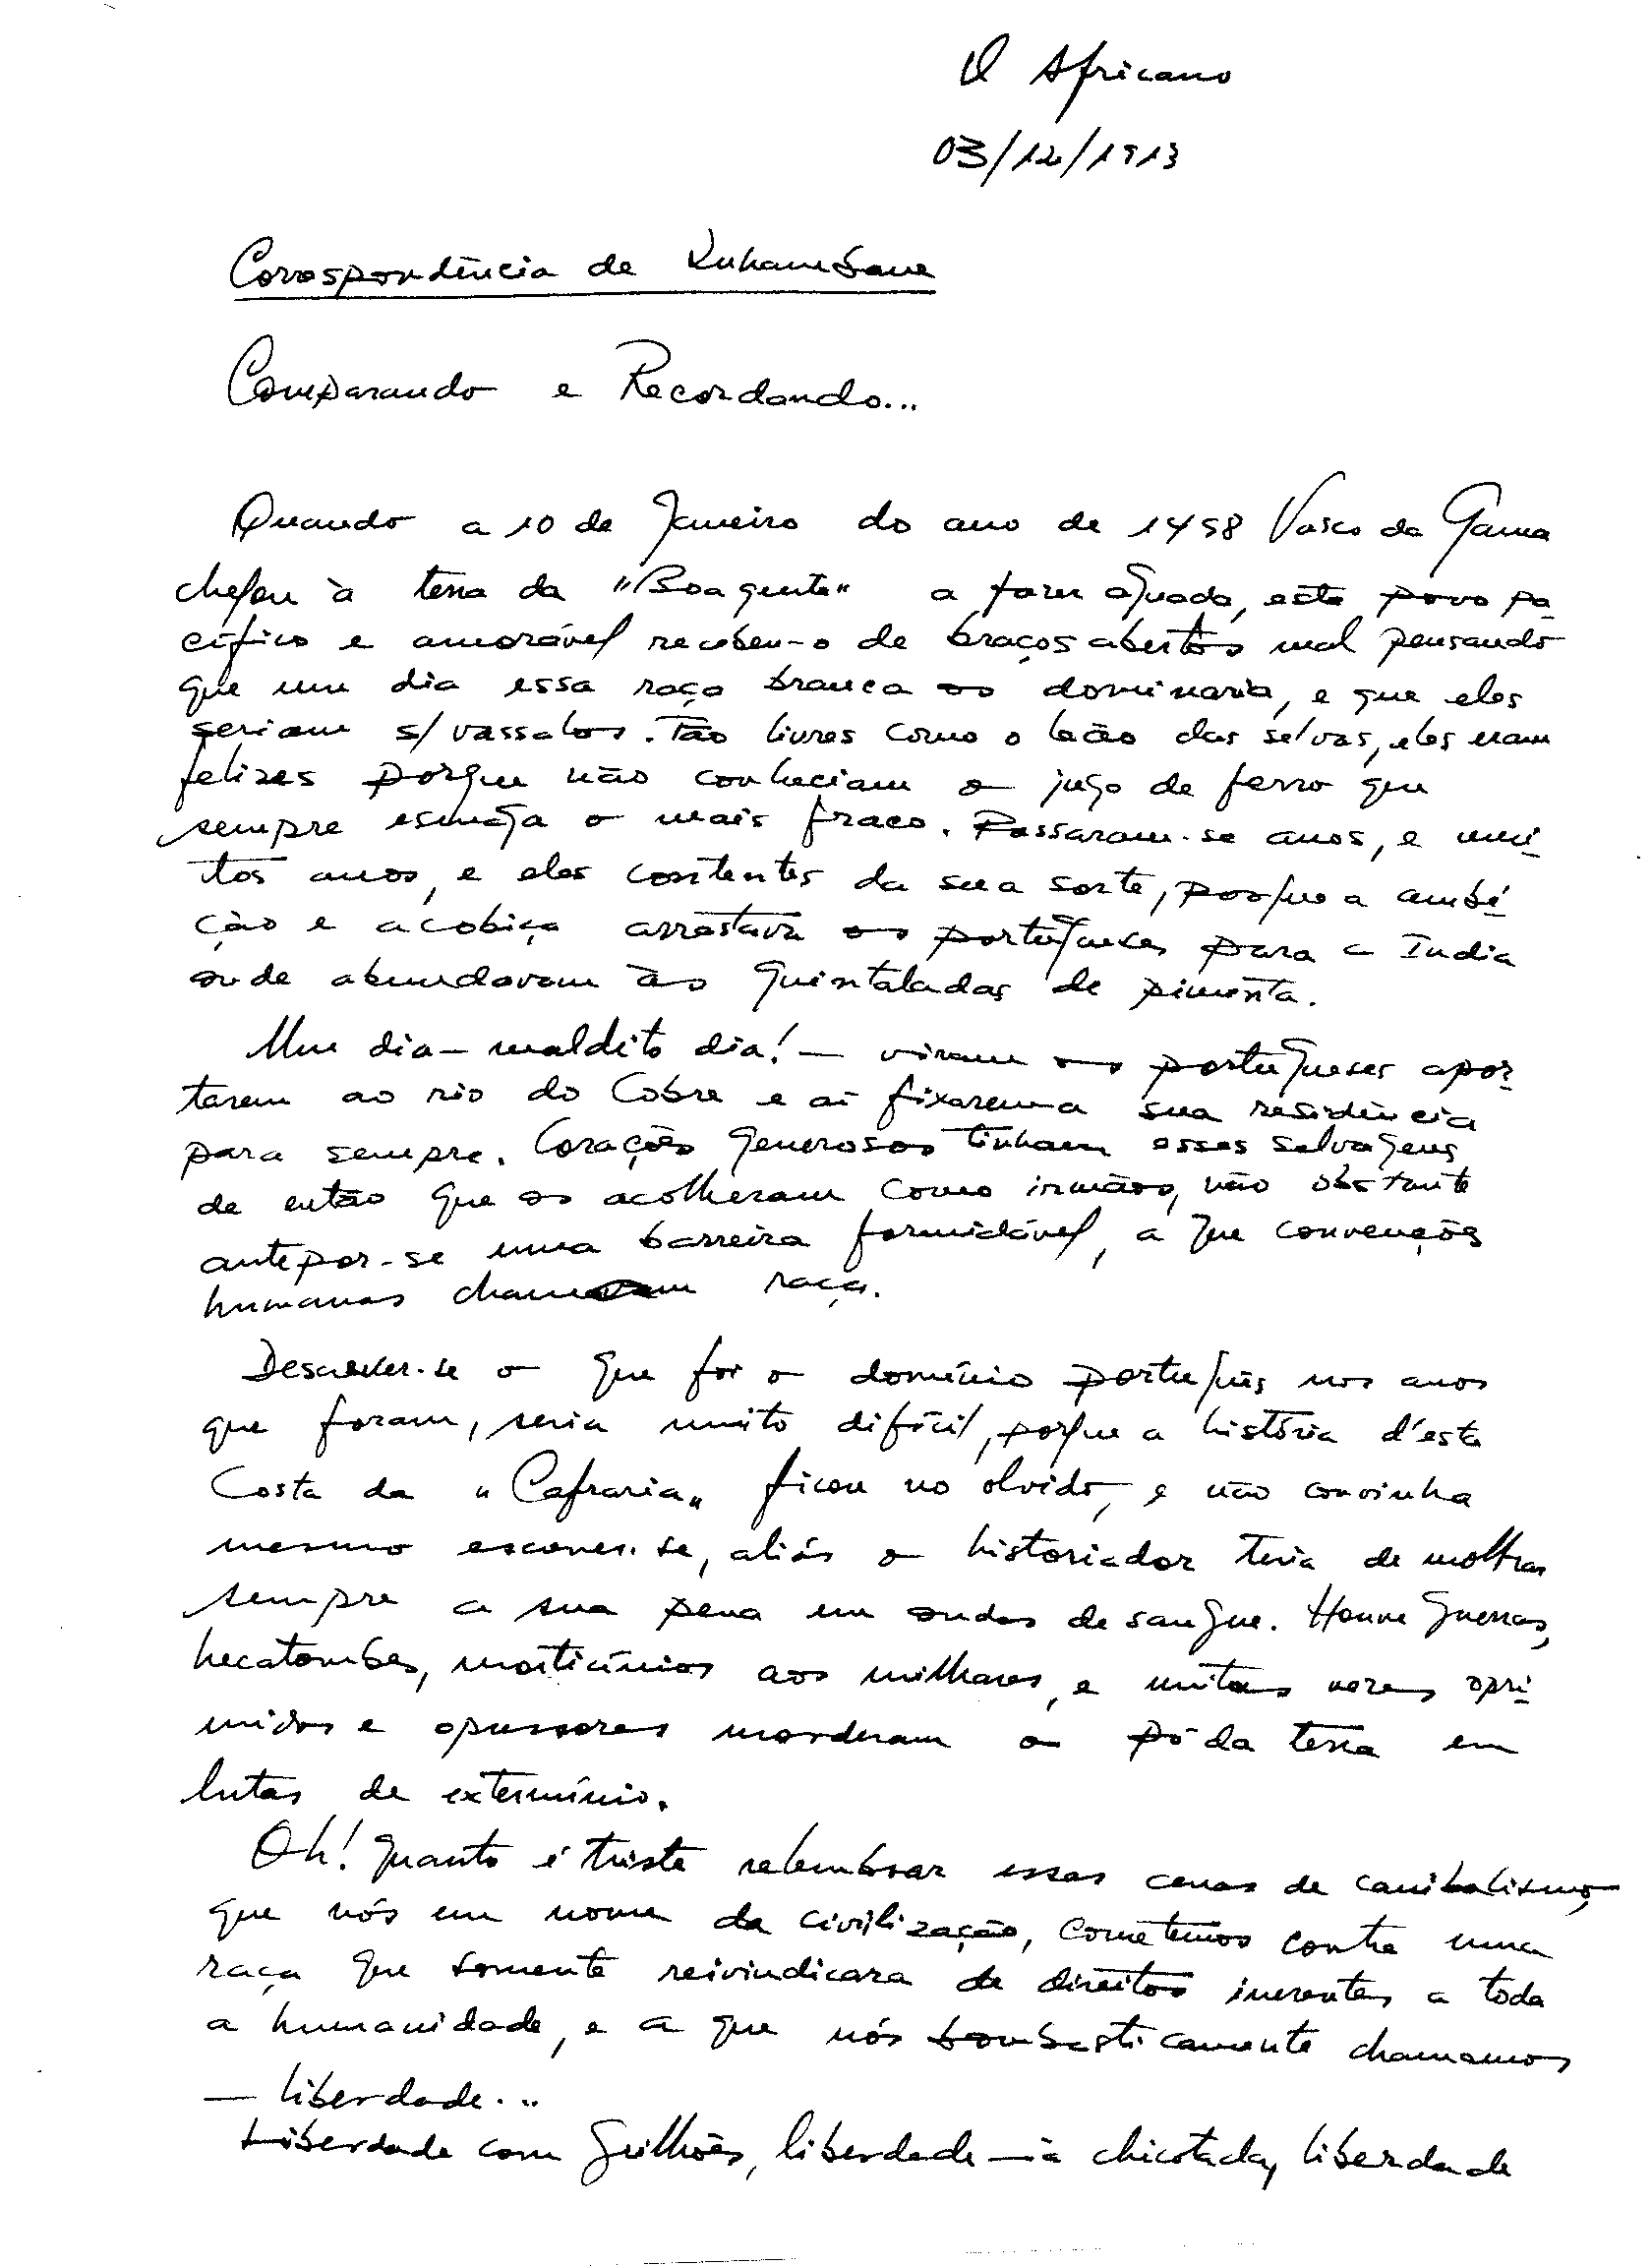 O Africano
03/12/1913
Correspondência de
Comparando e Recordando...
Quando a 10 de Janeiro do ano de 1498 Vasco da Gama
chegou à terra da "Boa gente" a fazer aguada, este povo pa
cífico e amorável recebeu-o de braços abertos mal pensando
que um dia essa raça branca os dominaria, e que eles
seriam s/ vassalos. Tão livres como o leão das selvas, eles eram
felizes porque não conheciam o jugo de ferro que
sempre esmaga o mais fraco. Passaram-se anos, e mui-
tos anos, e eles contentes da sua sorte, porque a ambi-
ção e a cobiça arrastava os portugueses para a India
onde abundavam às quintaladas de pimenta.
Um dia - maldito dia! - viram os portugueses apor-
tarem ao rio do Cobre e aí fixarem a sua residência
para sempre. Corações generosos tinham esses selvagens
de então que os acolheram como irmãos, não obstante
antepor-se uma barreira formidável, a que convenções
humanas chamaram raça.
Descrever-se o que foi o domínio português nos anos
que foram, seria muito difícil, porque a história d'esta
Costa da "Cafraria" ficou no olvido, e não convinha
mesmo escrever-se, aliás o historiador teria de molhar
sempre a sua pena em ondas de sangue. Houve guerras,
hecatombes, morticínios aos milhares, e muitas vezes opri-
midos e opressores morderam o pó da terra em
lutas de extermínio.
Oh! quanto é triste relembrar essas cenas de canibalismo,
que nós em nome da civilização, cometemos contra uma
raça que somente reivindicara de direitos inerentes a toda
a humanidade, e a que nós bombasticamente chamamos
- liberdade...
Liberdade com grilhões, liberdade - à chicotada, liberdade